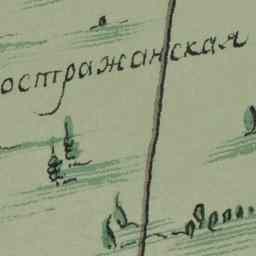 остражанская